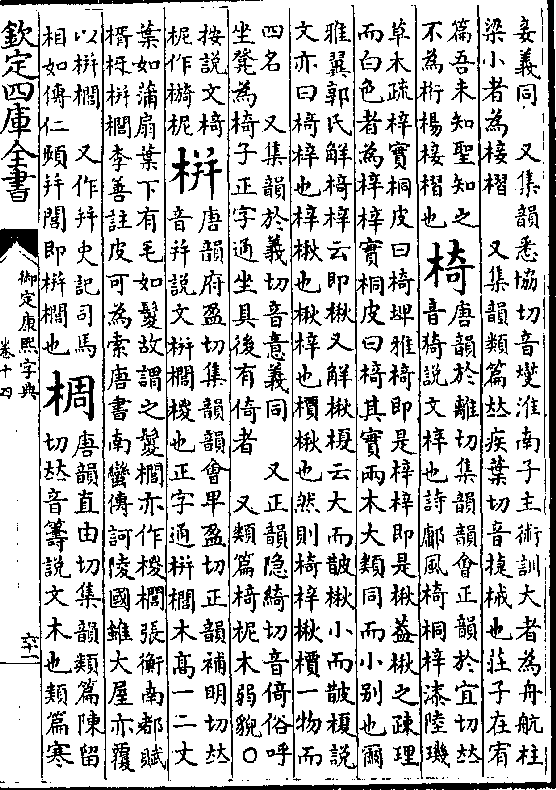 妾義同　又集韻悉協切音燮淮南子主術訓大者為舟航柱
梁小者為椄槢　又集韻類篇𠀤疾葉切音㨗椷也莊子在宥
篇吾未知聖知之
不為桁楊椄槢也
椅
唐韻於離切集韻韻會正韻於宜切𠀤
音猗說文梓也詩鄘風椅桐梓漆陸璣
草木疏梓實桐皮曰椅埤雅椅即是梓梓即是楸葢楸之疎理
而白色者為梓梓實桐皮曰椅其實兩木大類同而小別也爾
雅翼郭氏解椅梓云即楸又解楸榎云大而皵楸小而皵榎說
文亦曰椅梓也梓楸也楸梓也檟楸也然則椅梓楸檟一物而
四名　又集韻於義切音意義同　又正韻隱綺切音倚俗呼
坐凳為椅子正字通坐具後有倚者　又類篇椅柅木弱貌○
按說文椅
柅作檹柅
栟
唐韻府盈切集韻韻會𤰞盈切正韻補明切𠀤
音幷說文栟櫚椶也正字通栟櫚木高一二丈
葉如蒲扇葉下有毛如鬉故謂之鬉櫚亦作椶櫚張衡南都賦
楈枒栟櫚李善註皮可為索唐書南蠻傳訶陵國雖大屋亦覆
以栟櫚　又作幷史記司馬
相如傳仁頻幷閭即栟櫚也
椆
唐韻直由切集韻類篇陳留
切𠀤音籌說文木也類篇寒
欽定四庫全書
御定康熙字典
卷十四
六十一